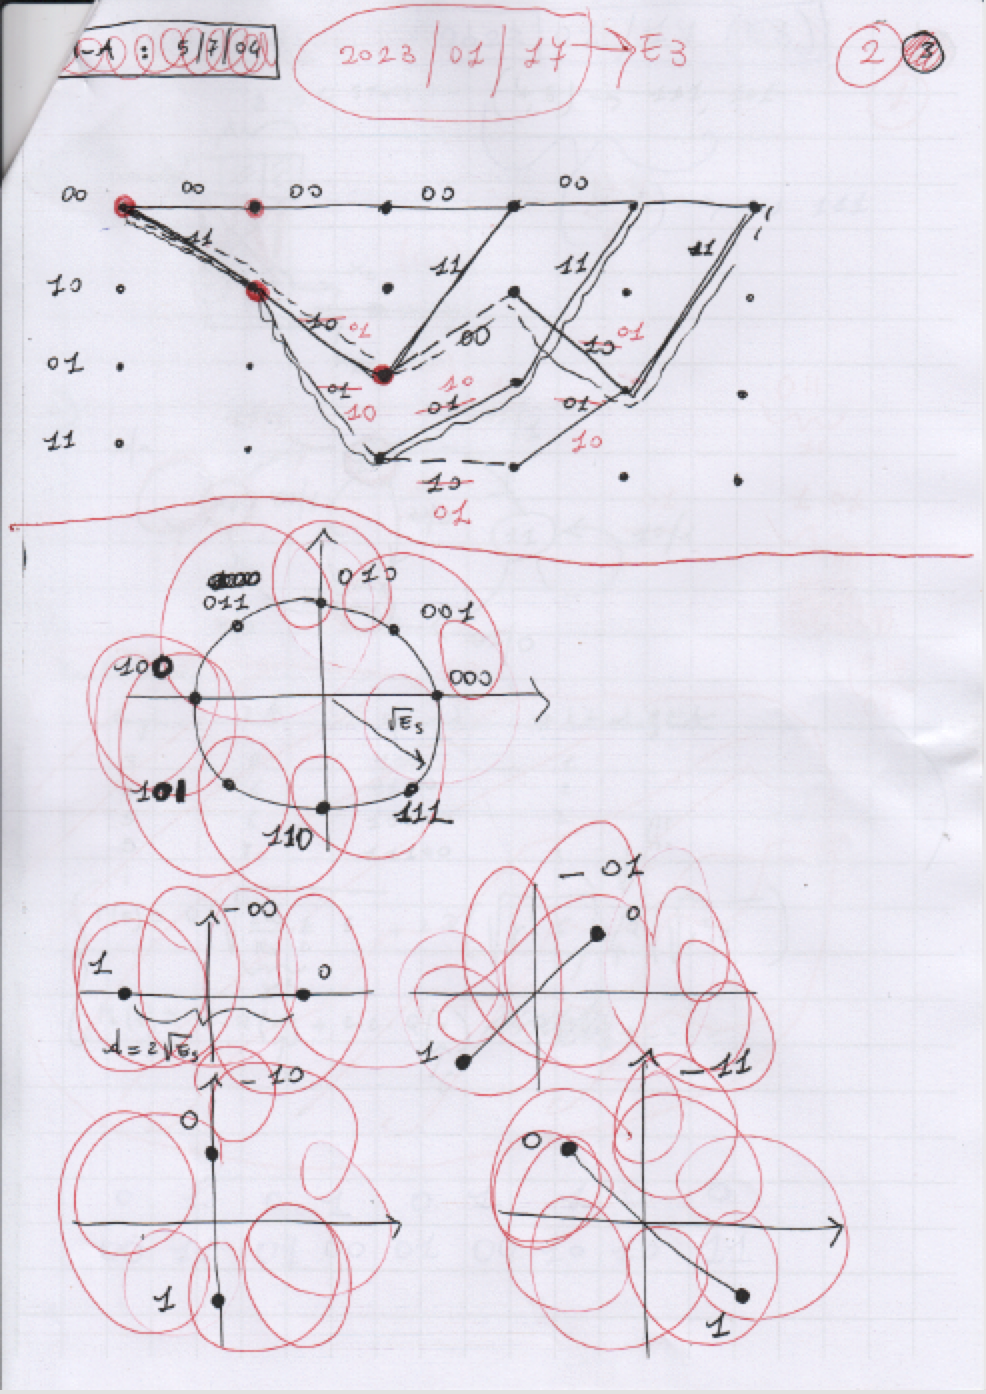 -A : 5/7/04 2023/01/17 → E3 2 3
00 00 00 00 00
11 11 11 11
10 10 01 00 10 01
01 01 10 10 01 01 10
11 10 01
010
011 001
100 000
√Es
101 111
110
-00 -01
1 0 0
d=2√Es 1
-10 -11
0 0
1 1